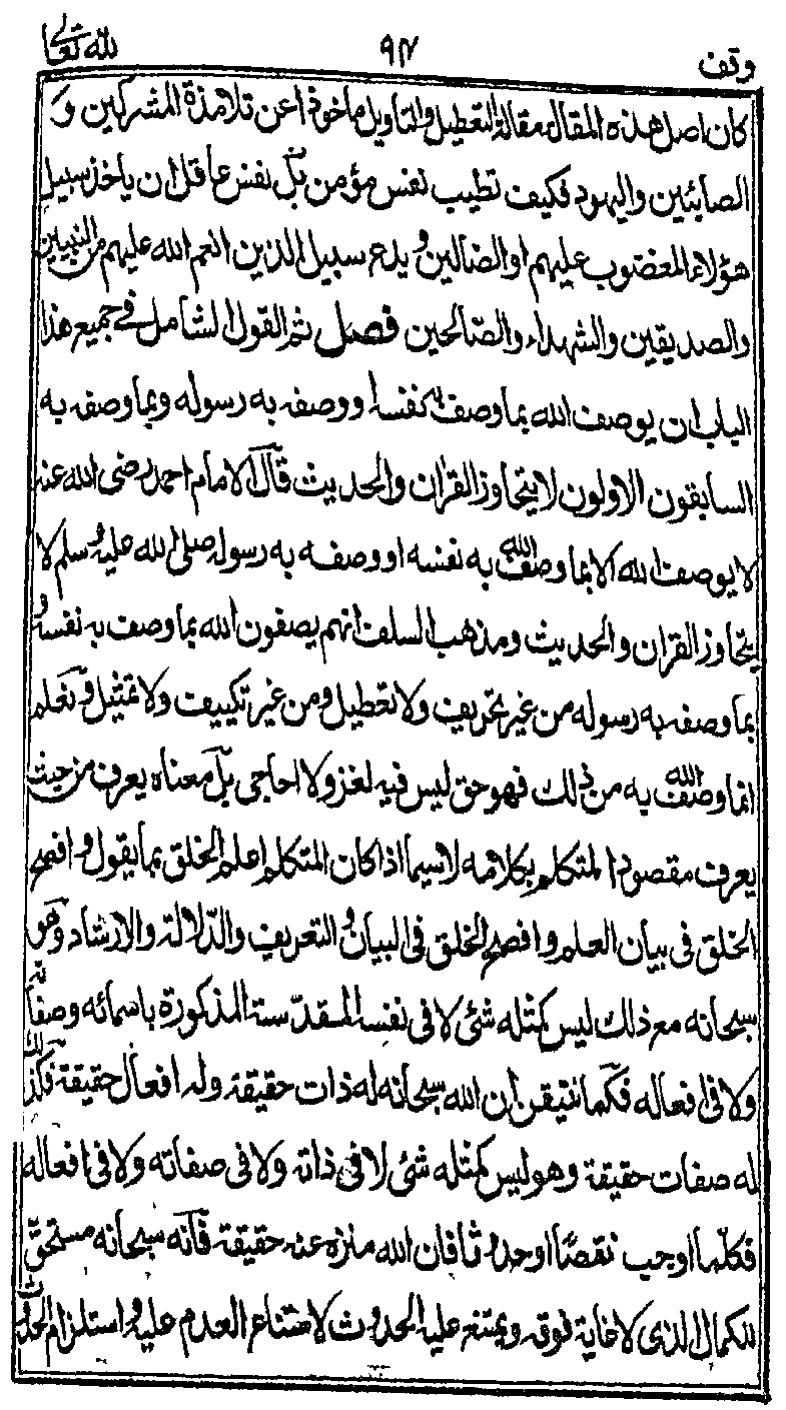 وقف ٩٧ لله تعالى
كان اصل هذه المقالة مقالة التعطيل والتاويل ماخوذا عن تلامذة المشركين و
الصابئين واليهود فكيف تطيب نفس مؤمن بل نفس عاقل ان ياخذ سبيل
هؤلاء المغضوب عليهم او الضالين و يدع سبيل الذين انعم الله عليهم من النبيين
والصديقين والشهداء والصالحين فصل ثم القول الشامل في جميع هذا
الباب ان يوصف الله بما وصف به نفسه او وصفه به رسوله وبما وصفه به
السابقون الاولون لا يتجاوز القران والحديث قال الامام احمد رضى الله عنه
لا يوصف الله الا بما وصف الله به نفسه او وصفه به رسوله صلى الله عليه وسلم لا
يتجاوز القران والحديث ومذهب السلف انهم يصفون الله بما وصف به نفسه و
بما وصفه به رسوله من غير تحريف ولا تعطيل ومن غير تكييف ولا تمثيل ونعلم
انما وصف الله به من ذلك فهو حق ليس فيه لغز ولا احاجى بل معناه يعرف من حيث
يعرف مقصود المتكلم بكلامه لا سيما اذا كان المتكلم اعلم الخلق بما يقول و افصح
الخلق فى بيان العلم و افصح الخلق فى البيان و التعريف والدلالة والارشاد وهو
سبحانه مع ذلك ليس كمثله شئ لا فى نفسه المقدسة المذكورة باسمائه وصفاته
ولا فى افعاله فكما نتيقن ان الله سبحانه له ذات حقيقة وله افعال حقيقة فكذلك
له صفات حقيقة وهو ليس كمثله شئ لا فى ذاته ولا فى صفاته ولا فى افعاله
فكلما اوجب نقصا او حدوثا فان الله منزه عنه حقيقة فانه سبحانه مستحق
للكمال الذى لا غاية فوقه ويمتنع عليه الحدوث لامتناع العدم عليه واستلزام الحدوث